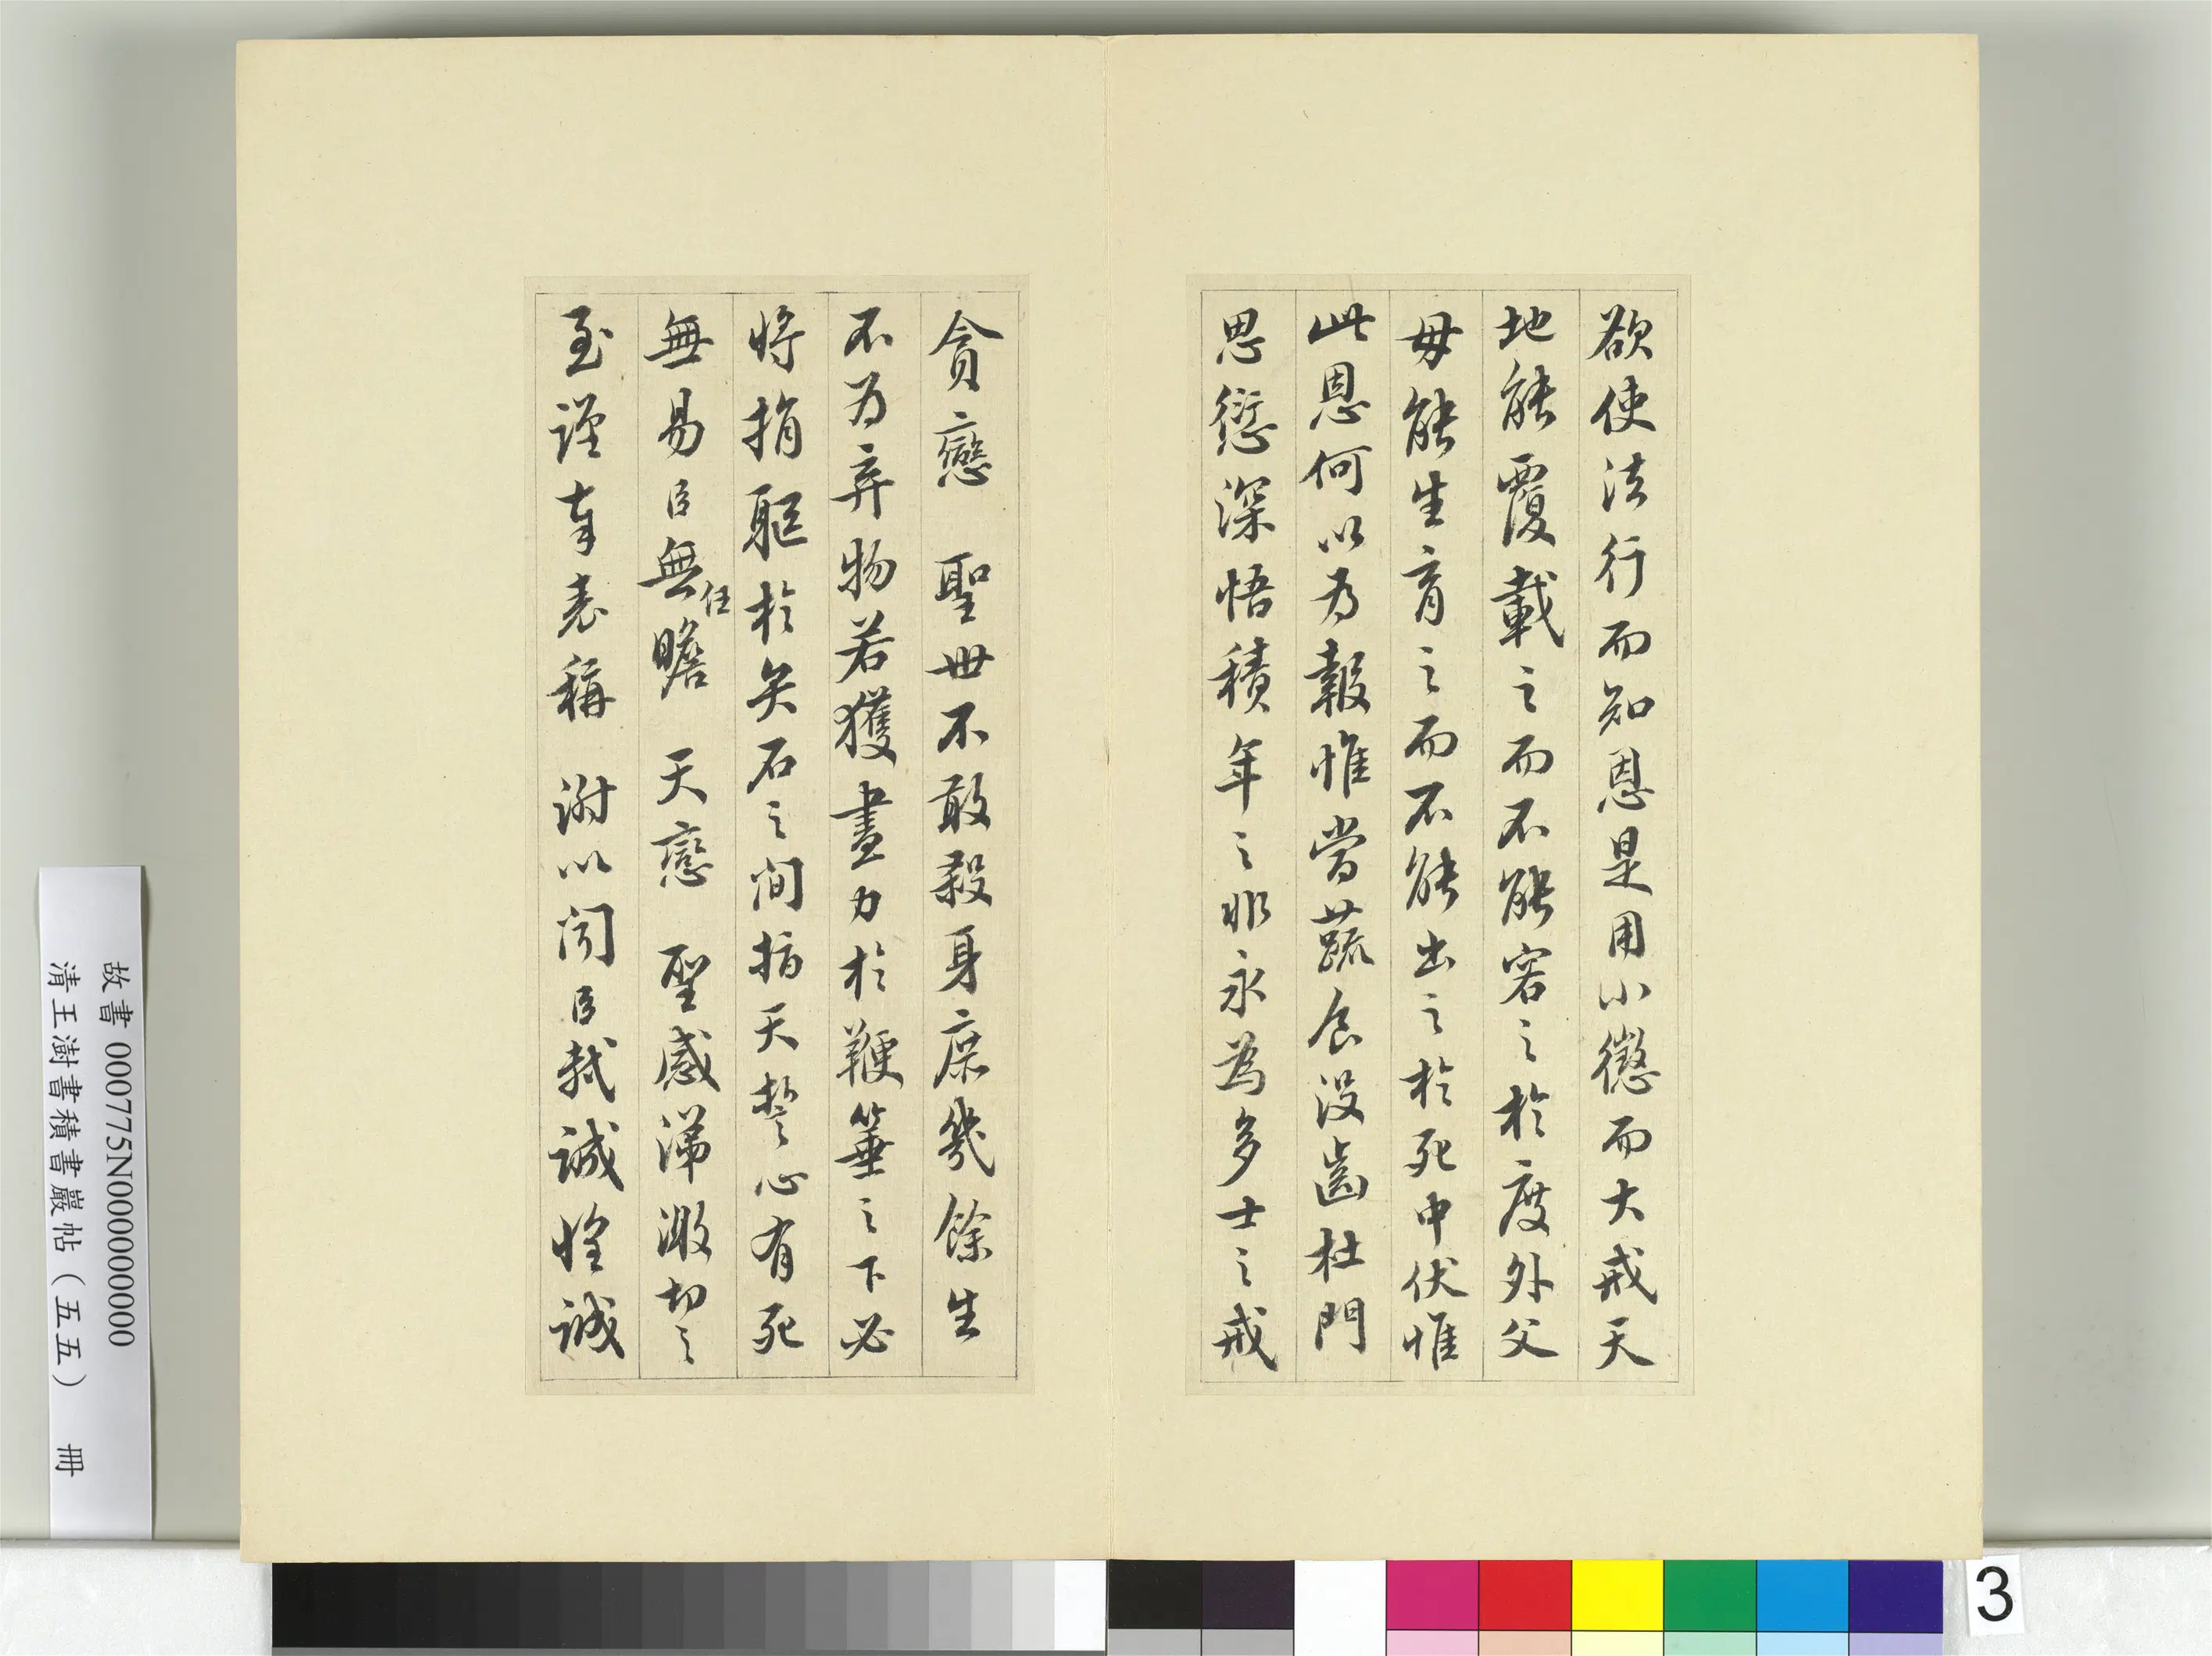 欲使法行而知恩是用小懲而大戒天
地能覆載之而不能容之於度外父
毋能生育之而不能出之於死中伏惟
此恩何以為報惟當蔬食没齒杜門
思愆深悟積年之非永為多士之戒
貪戀　聖世不敢殺身庶幾餘生
不為弃物若獲盡力於鞭箠之下必
將捐軀於矢石之間指天誓心有死
無易臣無任瞻　天戀　聖感涕激切之
至謹奉表稱　謝以聞臣軾誠惶誠
故書 000775N000000000
清王澍書積書巖帖（五五）　冊
3